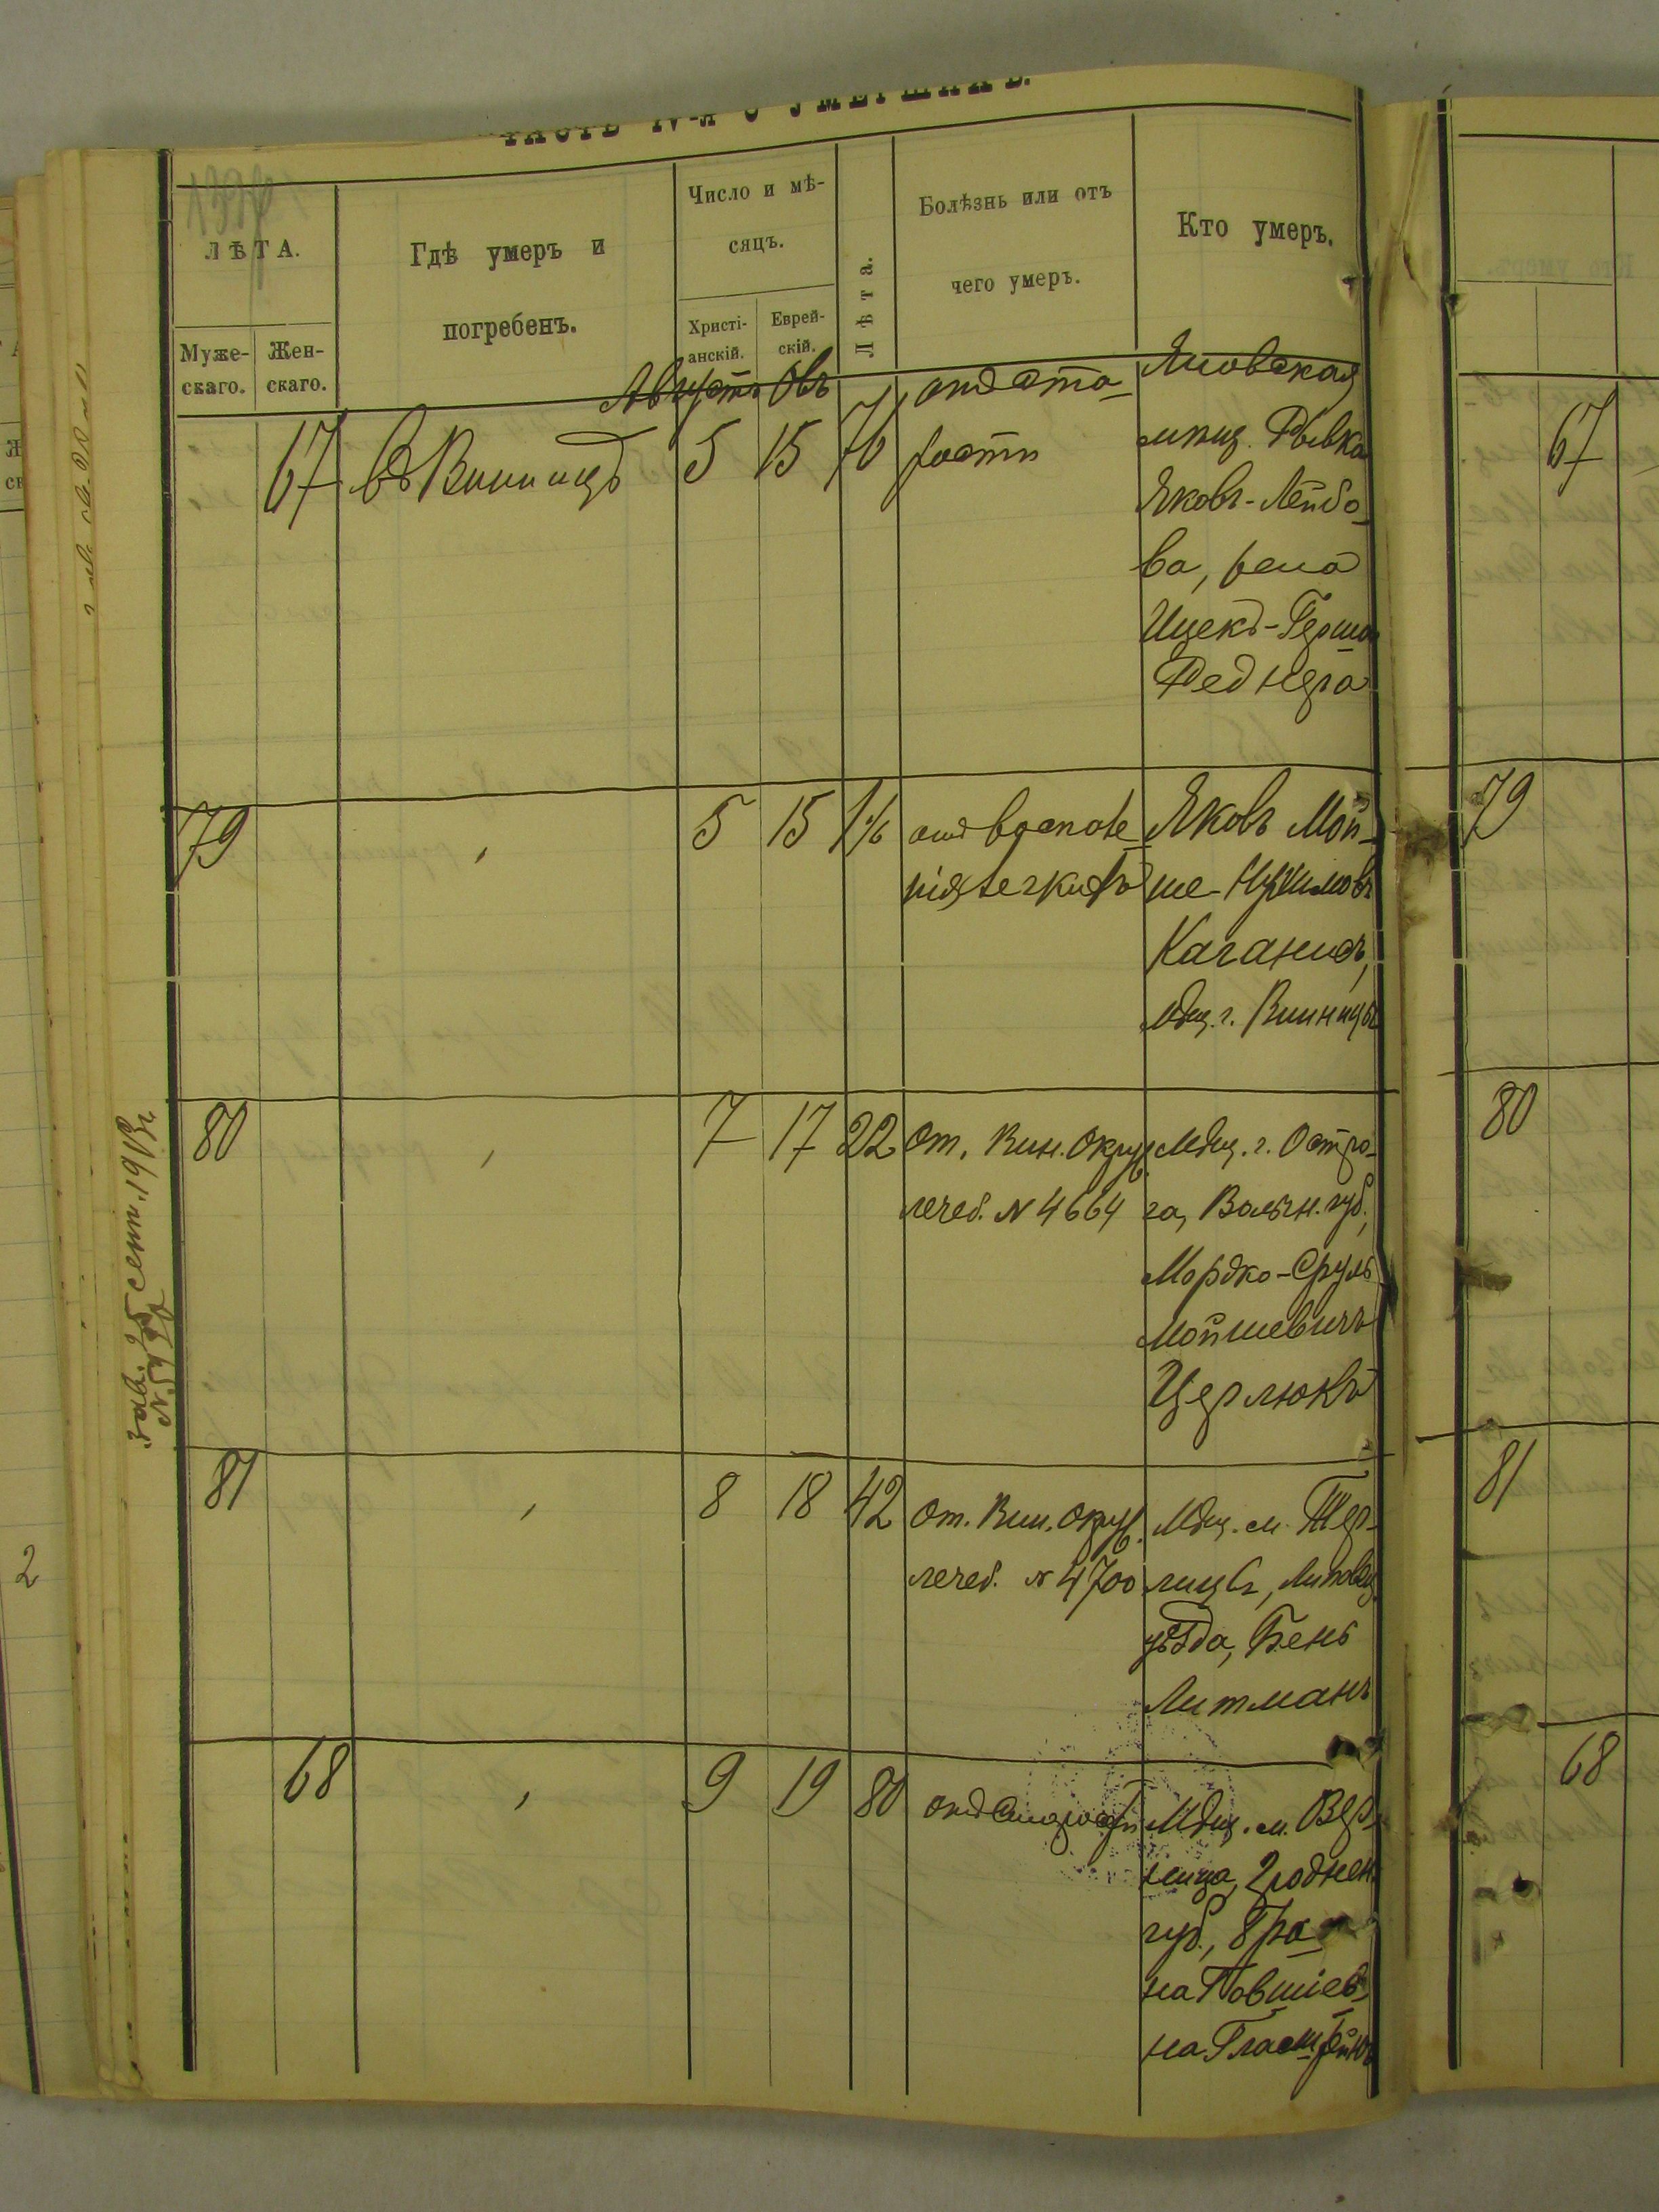 ЧАСТЬ IV-я О УМЕРШИХЪ.
ЛѢТА.
Муже-
скаго.
Жен-
скаго.
Гдѣ умеръ и
погребенъ.
Число и мѣ-
сяцъ.
Христі-
анскій.
Еврей-
скій.
Лѣта.
Болѣзнь или отъ
чего умеръ.
Кто умеръ.
Августъ Овъ
67 Въ Винницѣ 5 15 76 отъ ста-
рости
Яновская
мѣщ. Рывка
Яковъ-Лейбо-
ва, жена
Ицекъ-Герша
Феднера
79 5 15 1½ отъ воспале-
нія легкихъ
Яковъ Мой-
ше-Нухимовъ
Каганисъ,
мѣщ. г. Винницы
80 7 17 22 От. Вин. Окруж.
лечеб. N 4664
Мѣщ. г. Остро-
га, Волын. губ.,
Мордко-Сруль
Мойшевичъ
Церлюкъ
81 8 18 42 От. Вин. Окруж.
лечеб. N 4700
Мѣщ. м. Тер-
лицы, Липовец.
уѣзда, Бень
Литманъ
68 9 19 80 отъ старости
Мѣщ. м.
Гроднен.
губ.,
на
на
зав. 25 сент. 19
67
79
80
81
68
2